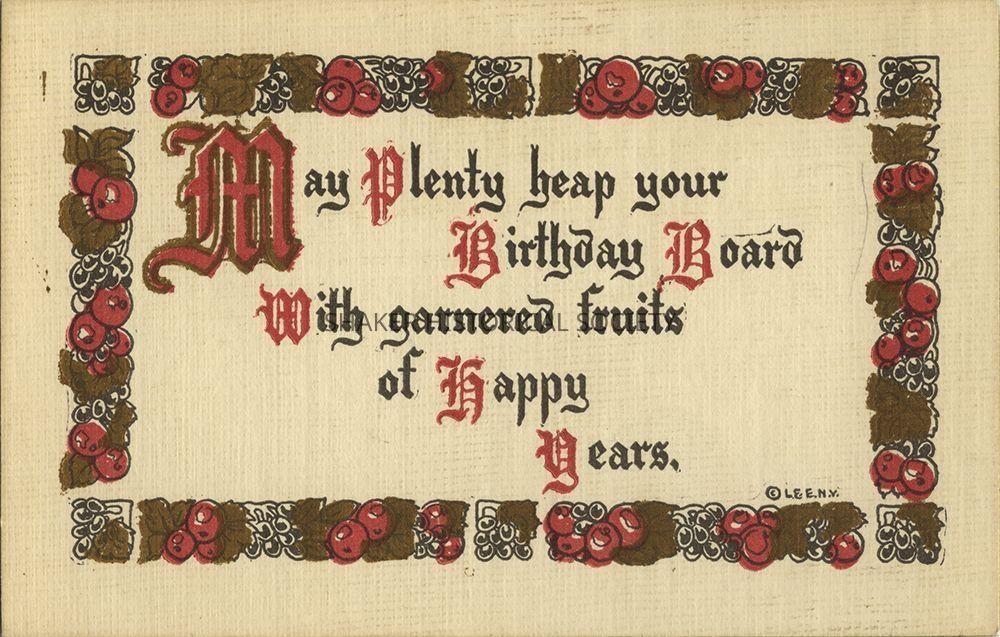 May Plenty heap your
Birthday Board
With garnered fruits
of Happy
Years.
© L.E.E.N.Y.
SHAKER HISTORICAL SOCIETY